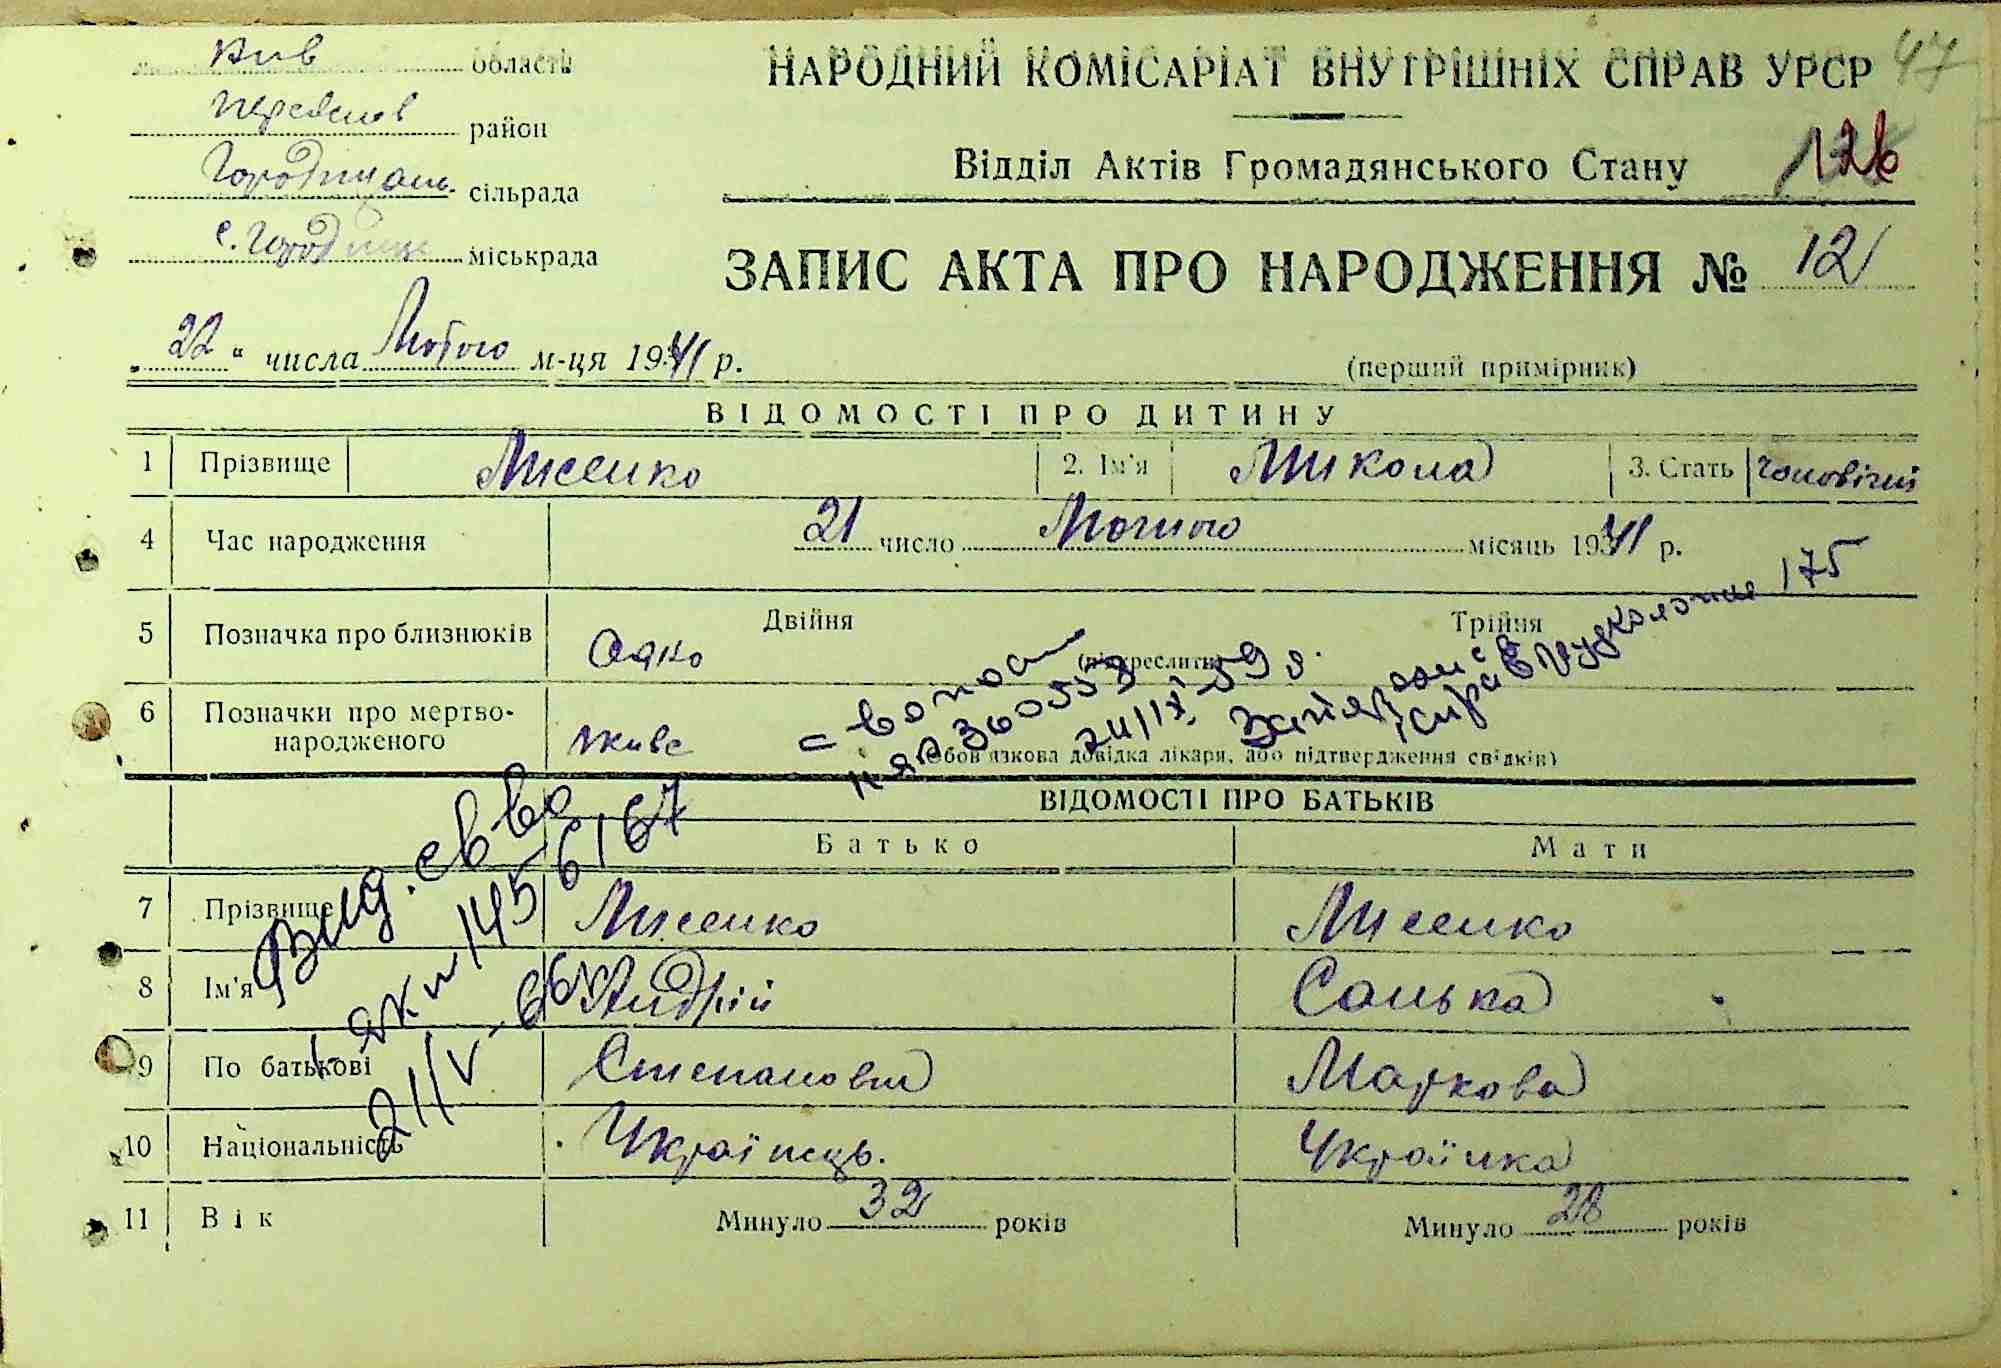 Київ області
Переяслів район
Городищан. сільрада
с. Городище міськрада
НАРОДНИЙ КОМІСАРІАТ ВНУТРІШНІХ СПРАВ УРСР 47
Відділ Актів Громадянського Стану 126
ЗАПИС АКТА ПРО НАРОДЖЕННЯ № 12
"22" числа Лютого м-ця 1941 р.
(перший примірник)
ВІДОМОСТІ ПРО ДИТИНУ
1 Прізвище Лисенко 2. Ім'я Микола 3. Стать Чоловічий
4 Час народження 21 число Лютого місяць 1941 р.
5 Позначка про близнюків Одно Двійня Трійня
(підкреслити)
6 Позначки про мертвонародженого живе
(обов'язкова довідка лікаря, або підтвердження свідків)
360553
175
ВІДОМОСТІ ПРО БАТЬКІВ
Батько Мати
Вид. св во
1456167
21/V-66
7 Прізвище Лисенко Лисенко
8 Ім'я Андрій Санька
9 По батькові Степанови Маркова
10 Національність Українець. Українка
11 Вік Минуло 32 років Минуло 28 років